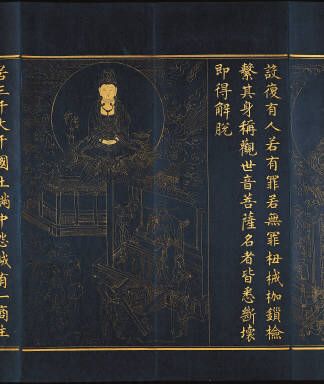 設復有人若有罪若無罪杻械枷鎖檢
繫其身稱觀世音菩薩名者皆悉斷壞
即得解脫
若三千大千國土滿中怨賊有一商主